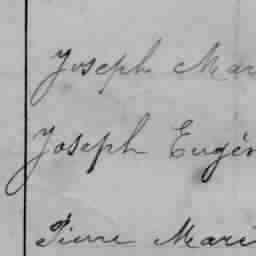 Joseph Mar
Joseph Eugén
Pierre Mari